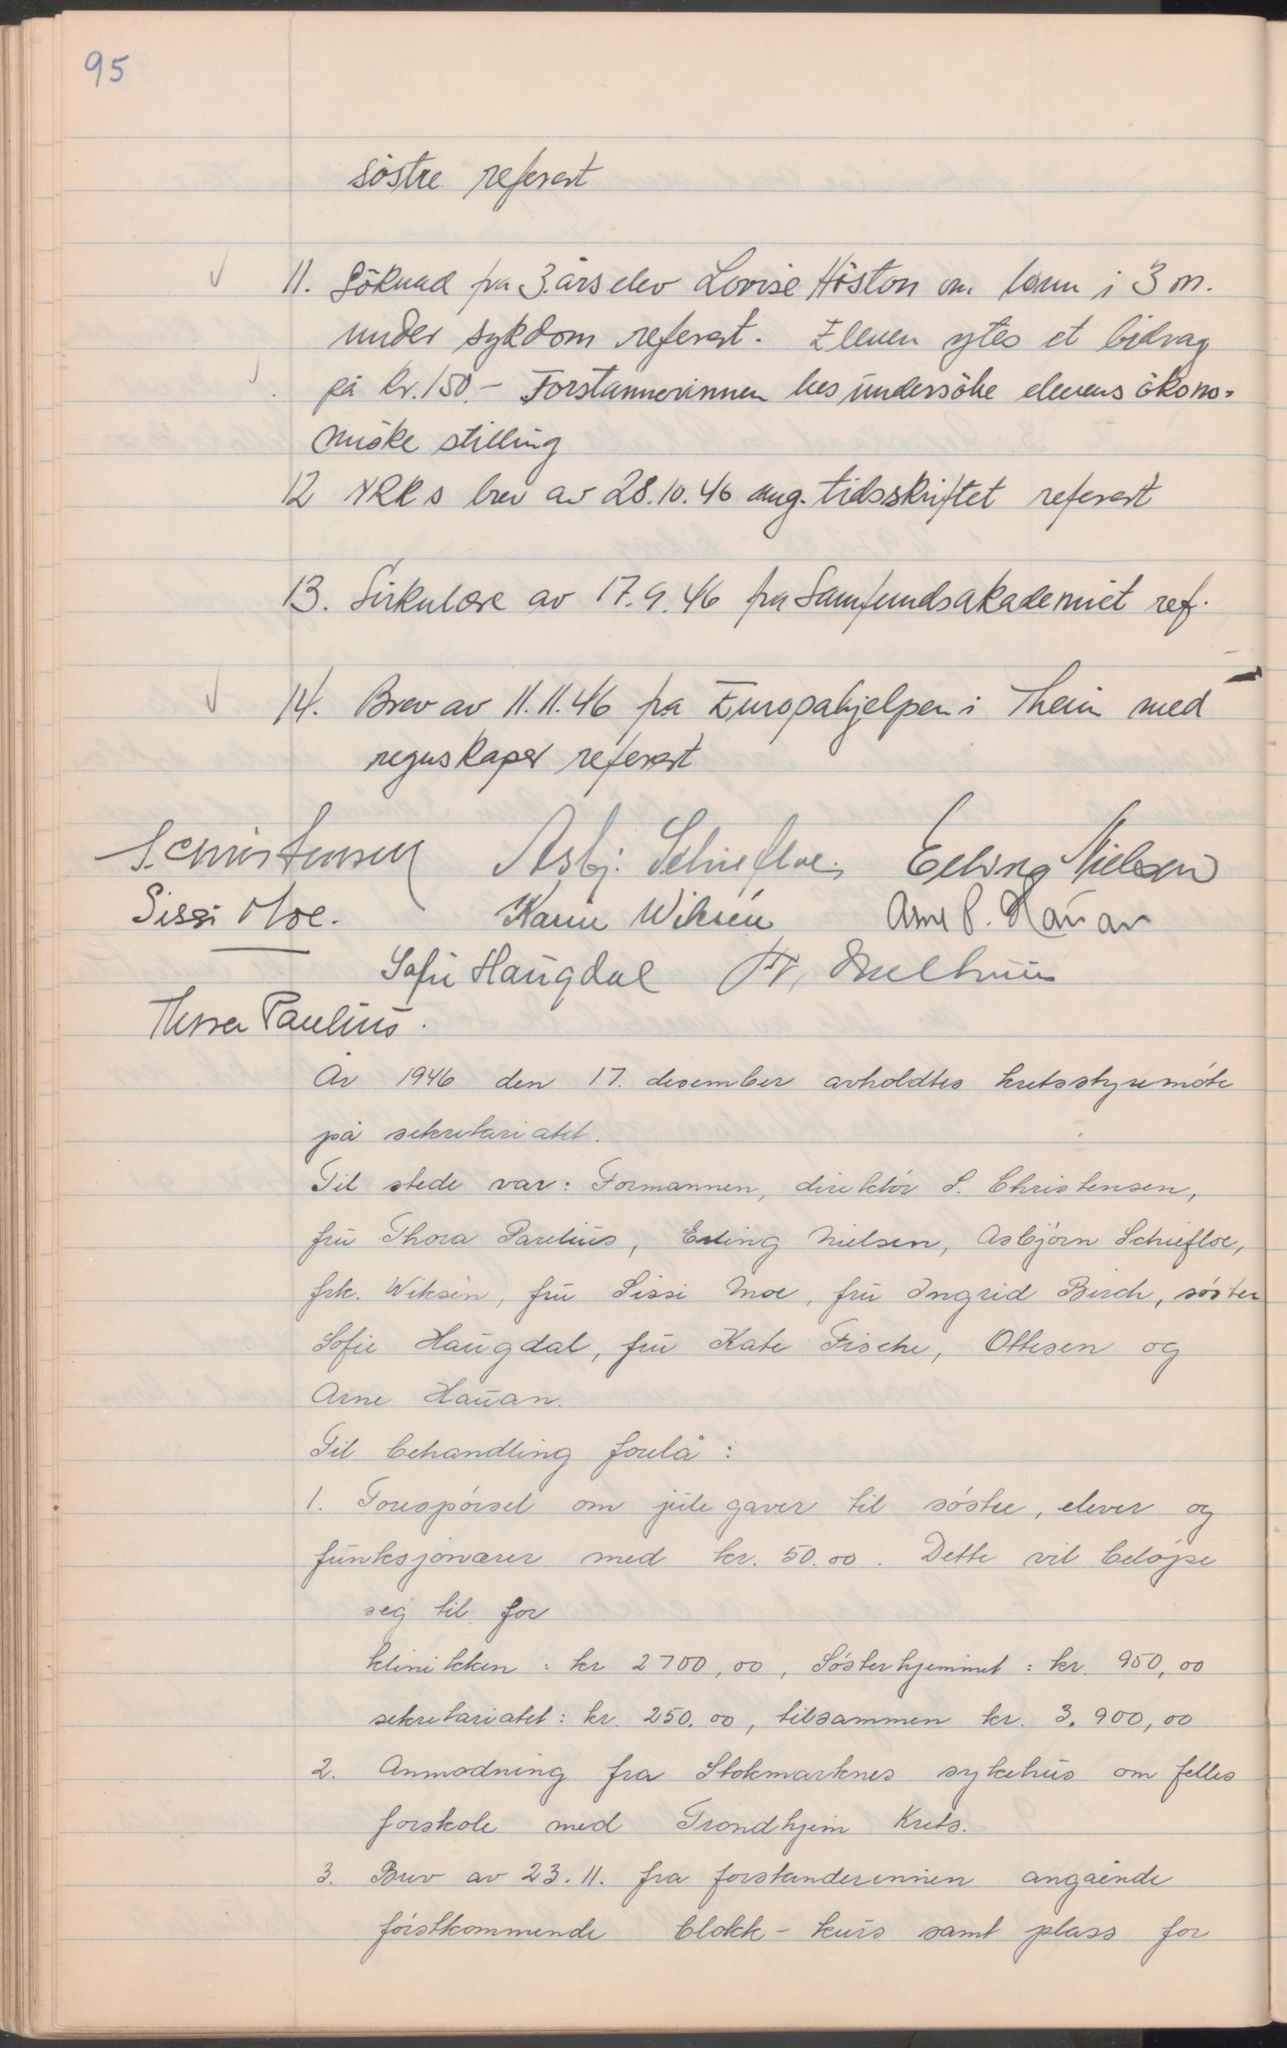 95
søstre referert
11. Søknad fra 3.årselev Lovise Høston om lønn i 3 m.
under sykdom referert. Eleven ytes et bidrag
på kr. 150.- Forstannerinnen bes undersøke elevens økono-
miske stilling
12 NRKs brev av 28.10.46 ang. tidsskriftet referert
13. Sirkulære av 17.9.46 fra Samfundsakademiet ref.
14. Brev av 11.11.46 fra Europahjelpen i Theim med
regnskaper referert
S. Christensen Asbj. Schiefloe. Erling Nielsen
Sissi Moe. Karin Wiksén Arne P. Hauan
Sofie Haugdal Fr.
Thora Parelius.
År 1946 den 17. desember avholdtes kretsstyremöte
på sekretariatet.
Til stede var: Formannen, direktör S. Christensen,
fru Thora Parelius, Erling Nielsen, Asbjörn Schiefloe,
frk. Wiksén, fru Sissi Moe, fru Ingrid Birch, söster
Sofie Haugdal, fru Kate Fische, Ottesen og
Arne Hauan.
Til behandling forelå:
1. Forespörsel om julegaver til söstre, elever og
funksjonærer med kr. 50.00. Dette vil belöpe
seg til for
klinikken: kr 2700,00, Sösterhjemmet: kr. 950,00
sekretariatet: kr. 250.00, tilsammen kr. 3.900,00
2. Anmodning fra Stokmarknes sykehus om felles
forskole med Trondhjem Krets.
3. Brev av 23.11. fra forstanderinnen angående
förstkommende blokk-kurs samt plass for